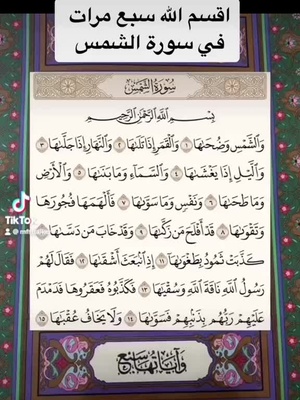 اقسم الله سبع مرات
في سورة الشمس
سُورَةُ الشَّمْسِ
بِسْمِ اللَّهِ الرَّحْمَٰنِ الرَّحِيمِ
وَالشَّمْسِ وَضُحَىٰهَا ١ وَالْقَمَرِ إِذَا تَلَىٰهَا ٢ وَالنَّهَارِ إِذَا جَلَّىٰهَا ٣
وَالَّيْلِ إِذَا يَغْشَىٰهَا ٤ وَالسَّمَاءِ وَمَا بَنَىٰهَا ٥ وَالْأَرْضِ
وَمَا طَحَىٰهَا ٦ وَنَفْسٍ وَمَا سَوَّىٰهَا ٧ فَأَلْهَمَهَا فُجُورَهَا
وَتَقْوَىٰهَا ٨ قَدْ أَفْلَحَ مَن زَكَّىٰهَا ٩ وَقَدْ خَابَ مَن دَسَّىٰهَا ١٠
كَذَّبَتْ ثَمُودُ بِطَغْوَىٰهَا ١١ إِذِ انۢبَعَثَ أَشْقَىٰهَا ١٢ فَقَالَ لَهُمْ
رَسُولُ اللَّهِ نَاقَةَ اللَّهِ وَسُقْيَٰهَا ١٣ فَكَذَّبُوهُ فَعَقَرُوهَا فَدَمْدَمَ
عَلَيْهِمْ رَبُّهُم بِذَنۢبِهِمْ فَسَوَّىٰهَا ١٤ وَلَا يَخَافُ عُقْبَٰهَا ١٥
TikTok